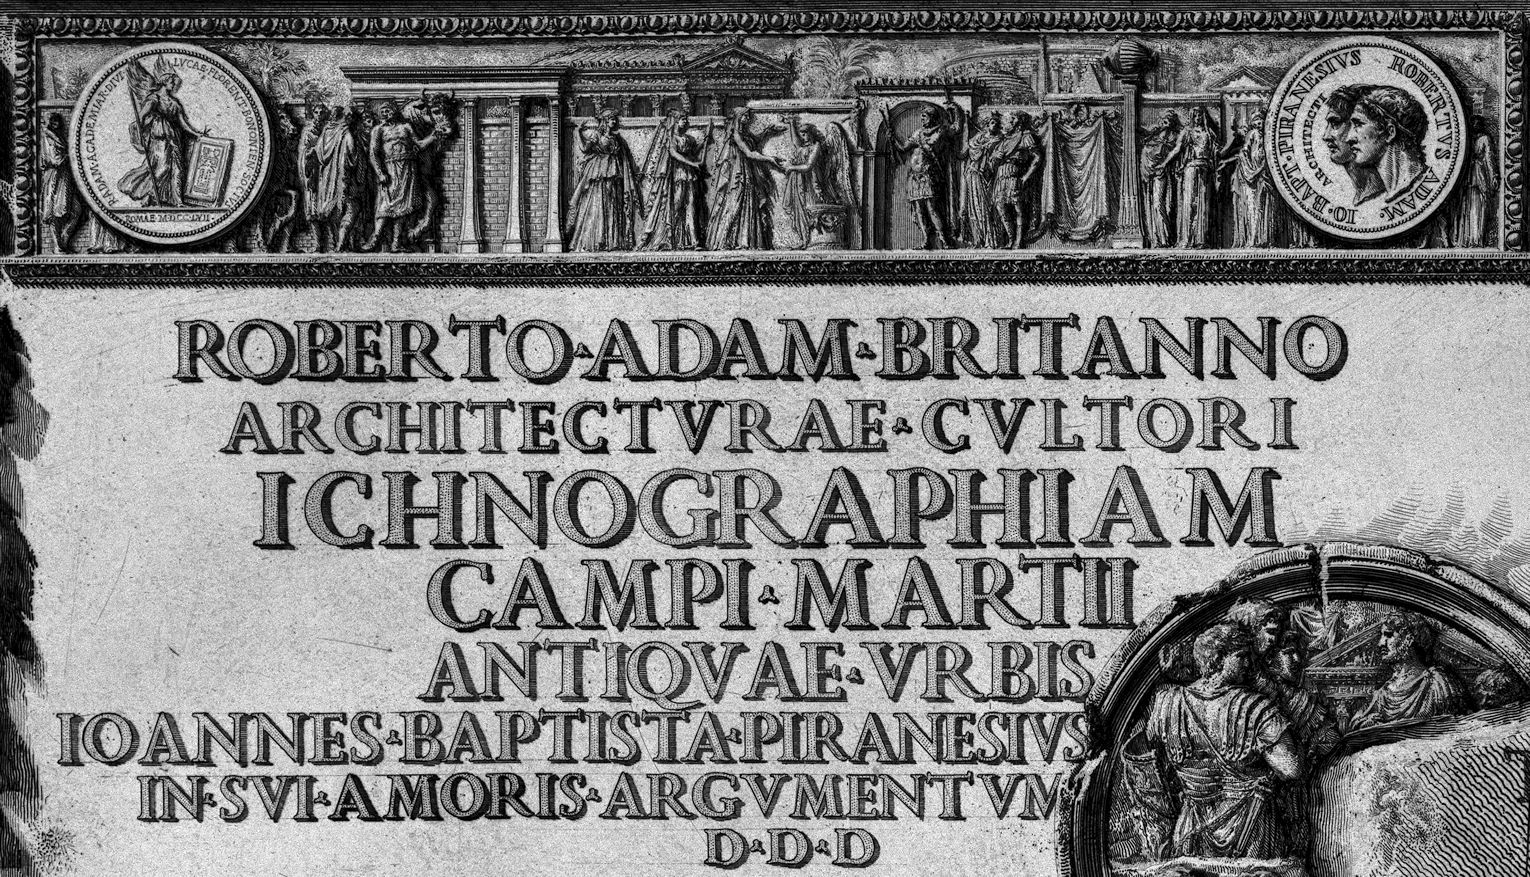 ROMAE·M·DCC·LVII·
IO·BAPT·PIRANESIVS ROBERTVS ADAM·
ARCHITECTI
ROBERTO·ADAM·BRITANNO
ARCHITECTVRAE·CVLTORI
ICHNOGRAPHIAM
CAMPI·MARTII
ANTIQVAE·VRBIS
IOANNES·BAPTISTA·PIRANESIVS
IN·SVI·AMORIS·ARGVMENTVM
D·D·D